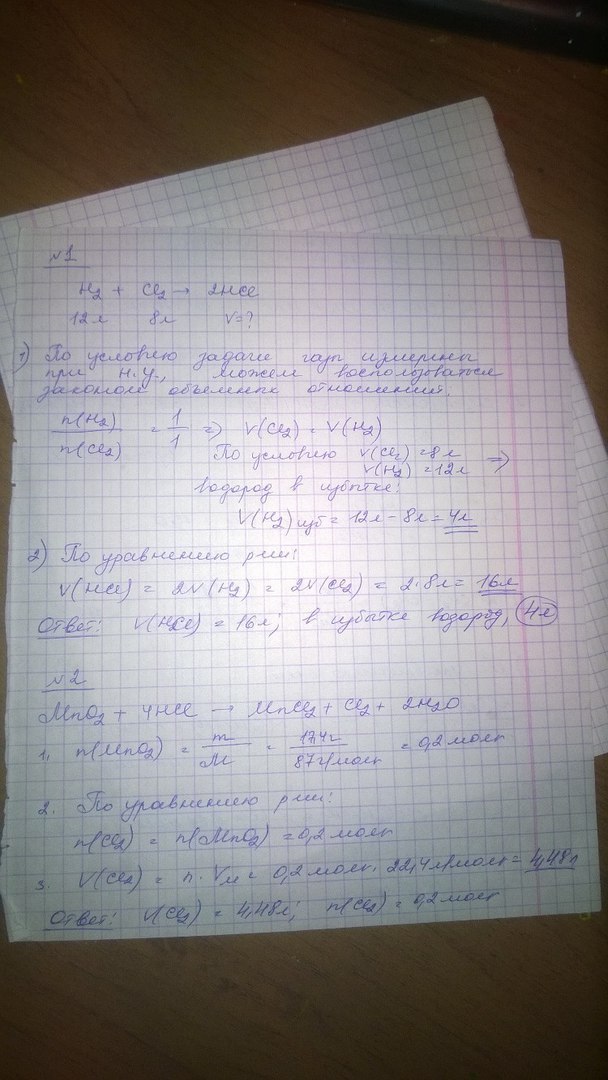 №1
H₂ + Cl₂ → 2HCl
12л 8л V=?
1) По условию задачи газы измерены
при н.у., можем воспользоваться
законом объемных отношений.
n(H₂)/n(Cl₂) = 1/1 => V(Cl₂) = V(H₂)
По условию V(Cl₂) = 8л
V(H₂) = 12л =>
водород в избытке:
V(H₂)изб = 12л - 8л = 4л
2) По уравнению р-ии:
V(HCl) = 2V(H₂) = 2V(Cl₂) = 2·8л = 16л
Ответ: V(HCl) = 16л; в избытке водород, 4л
№2
MnO₂ + 4HCl → MnCl₂ + Cl₂ + 2H₂O
1. n(MnO₂) = m/M = 17,4г/87г/моль = 0,2 моль
2. По уравнению р-ии:
n(Cl₂) = n(MnO₂) = 0,2 моль
3. V(Cl₂) = n · Vм = 0,2 моль · 22,4л/моль = 4,48л
Ответ: V(Cl₂) = 4,48л; n(Cl₂) = 0,2 моль